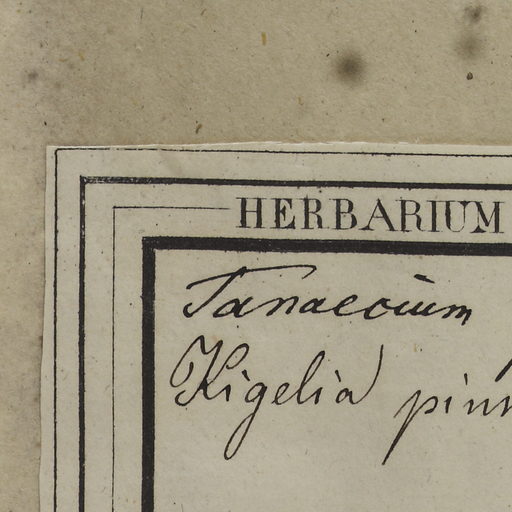 HERBARIUM
Tanaecium
Kigelia pinn